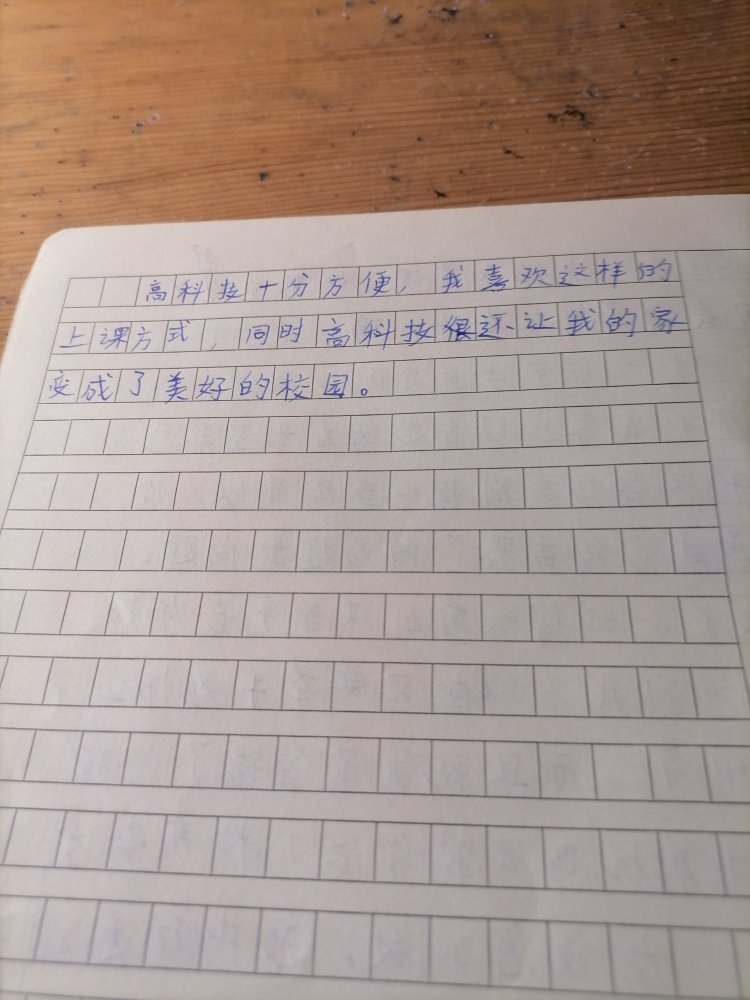 高科技十分方便，我喜欢这样的
上课方式，同时高科技很还让我的家
变成了美好的校园。